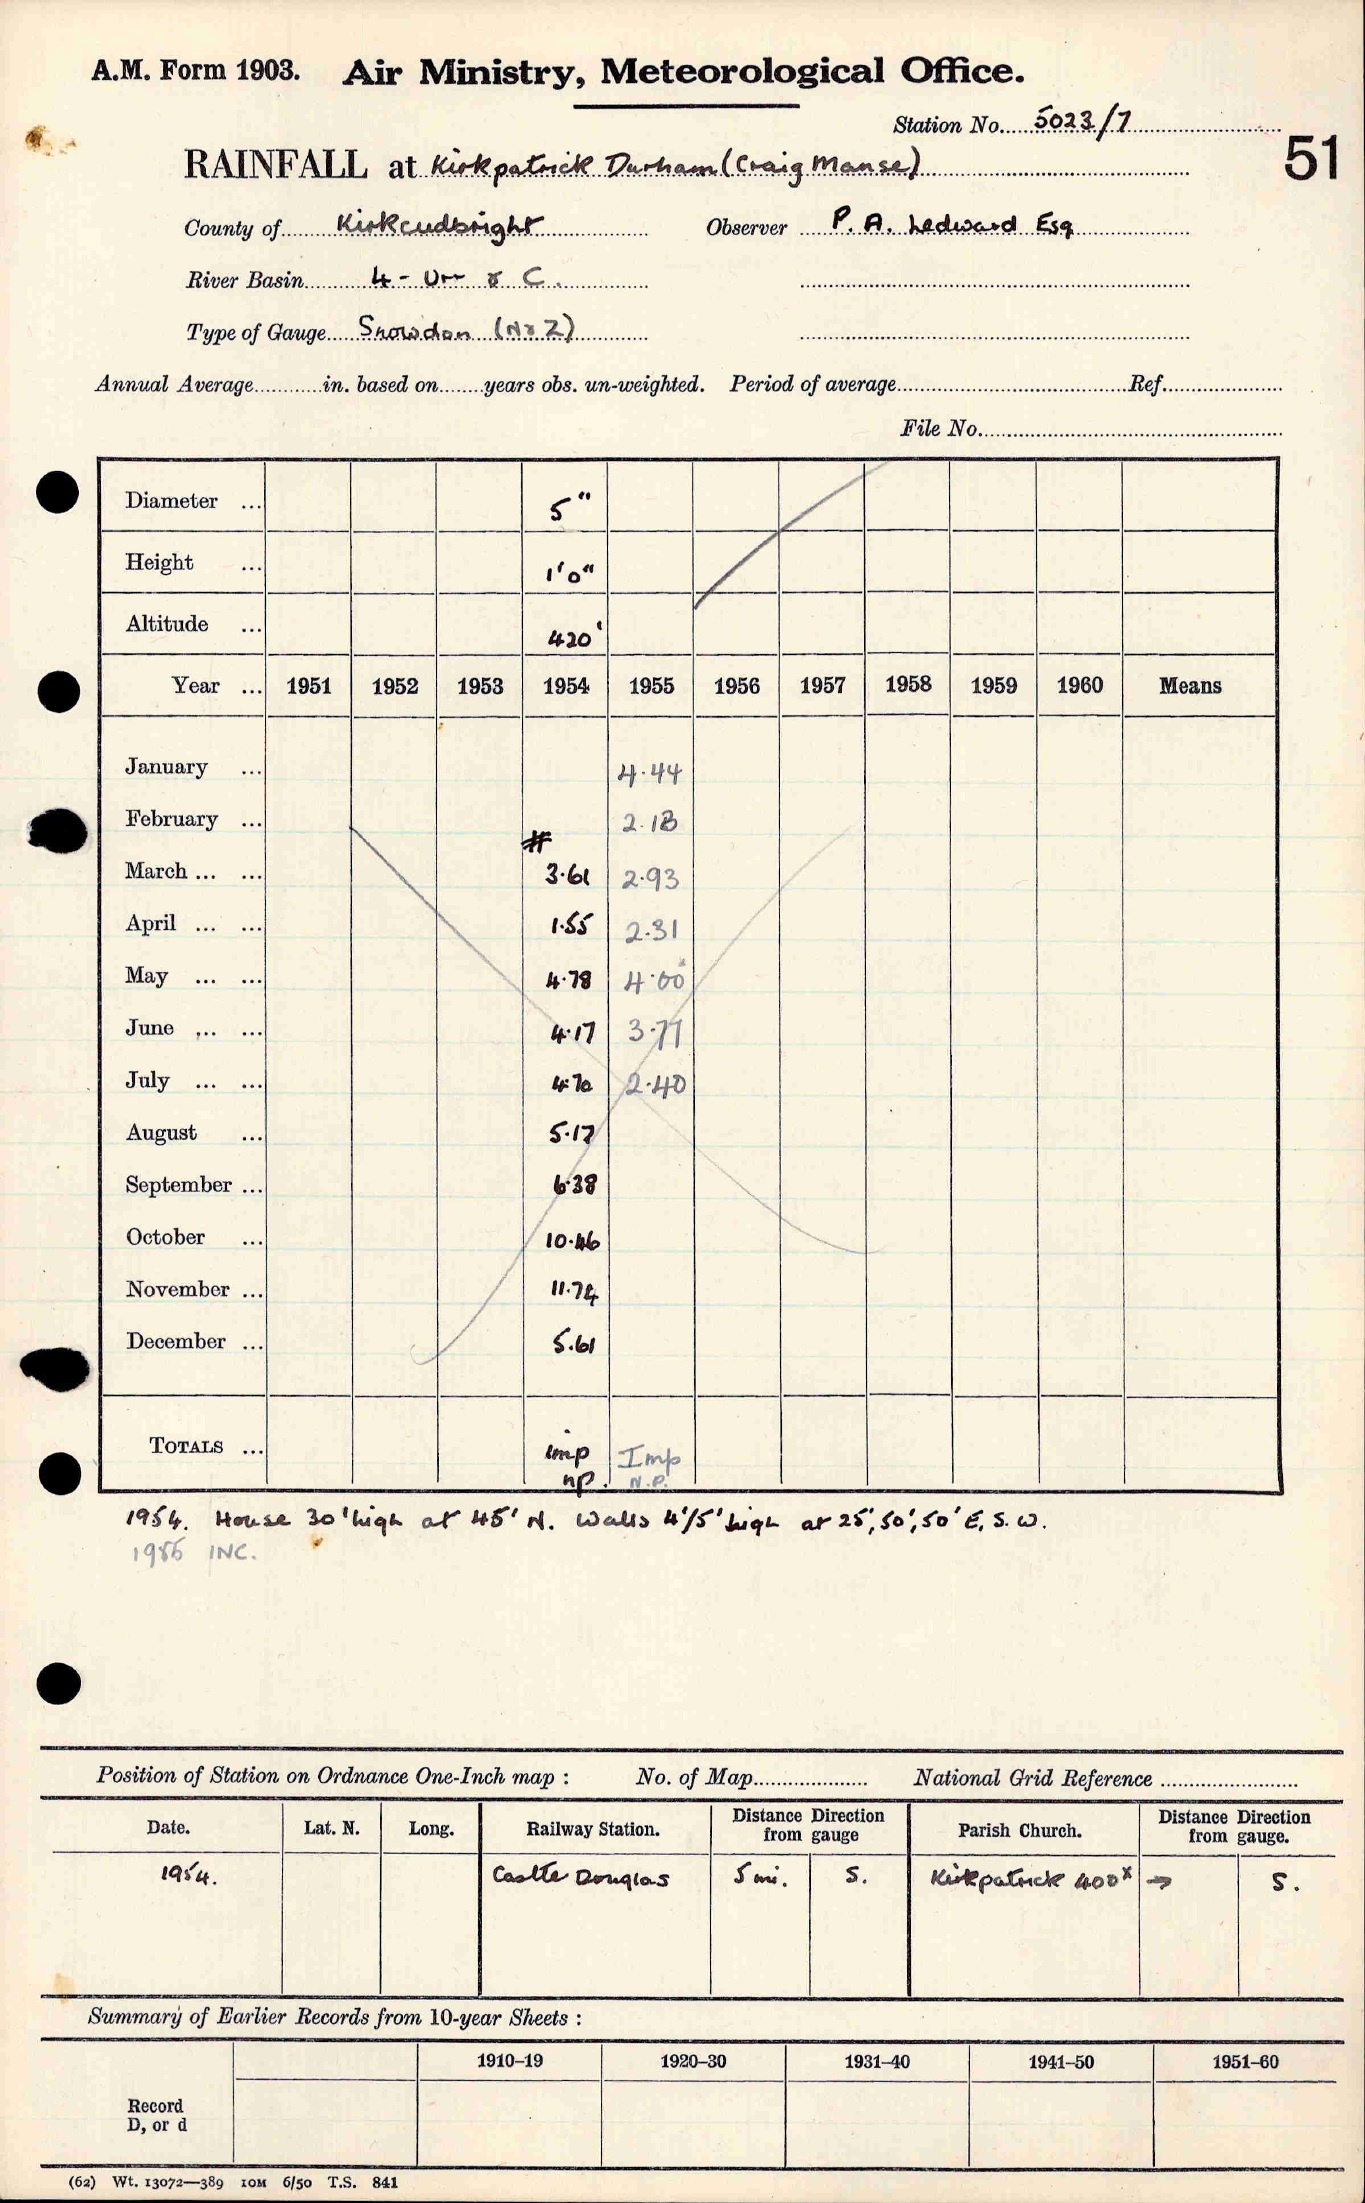 A.M. Form 1903. Air Ministry, Meteorological Office.
Station No. 5023/7
51
RAINFALL at Kirkpatrick Durham (Craig Manse)
County of Kirkcudbright Observer P. A. Ledward Esq
River Basin 4 - Urr & C.
Type of Gauge Snowdon (No 2)
Annual Average in. based on years obs. un-weighted. Period of average Ref.
File No.
Diameter ... 5"
Height ... 1'0"
Altitude ... 420'
Year ... 1951 1952 1953 1954 1955 1956 1957 1958 1959 1960 Means
January ... 4.44
February ... 2.18
#
March ... ... 3.61 2.93
April ... ... 1.55 2.31
May ... ... 4.78 4.00*
June ... ... 4.17 3.77
July ... ... 4.70 2.40
August ... 5.17
September ... 6.38
October ... 10.46
November ... 11.74
December ... 5.61
TOTALS ... imp Imp
np. N.P.
1954. House 30' high at 45' N. Walls 4'/5' high at 25', 50', 50' E, S. W.
1955 INC.
Position of Station on Ordnance One-Inch map : No. of Map National Grid Reference
Date. Lat. N. Long. Railway Station. Distance Direction from gauge Parish Church. Distance Direction from gauge.
1954. Castle Douglas 5 mi. S. Kirkpatrick 400x → S.
Summary of Earlier Records from 10-year Sheets :
1910–19 1920–30 1931–40 1941–50 1951–60
Record
D, or d
(62) Wt. 13072—389 10M 6/50 T.S. 841